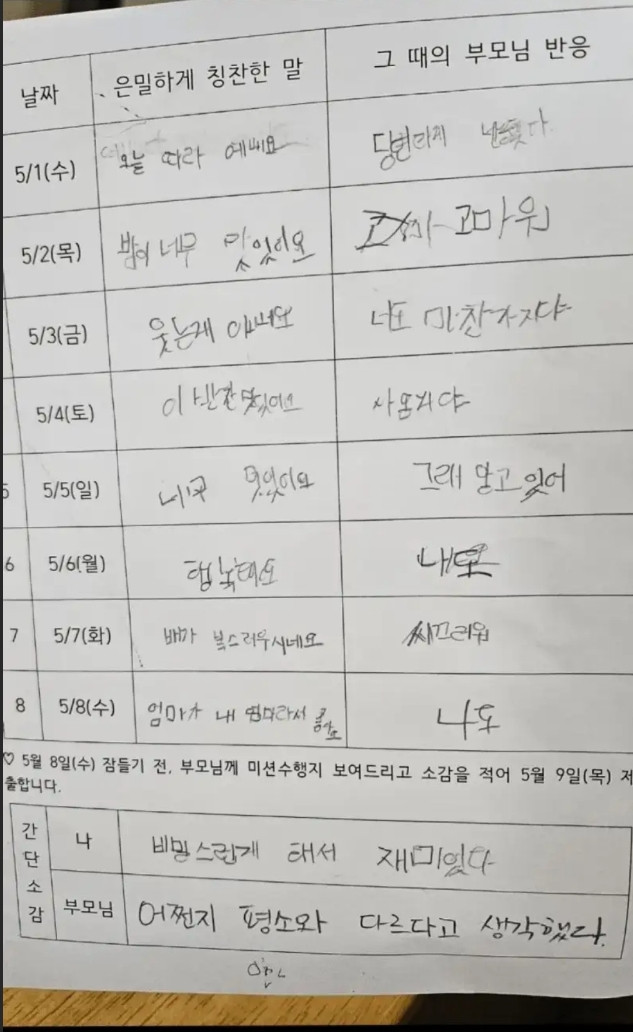 날짜 은밀하게 칭찬한 말 그 때의 부모님 반응
5/1(수) 오늘 따라 예뻐요 당연하지
5/2(목) 밥이 너무 맛있어요 고마워
5/3(금) 웃는게 이뻐요 너도 마찬가지다
5/4(토) 이 반찬 맛있어요
5 5/5(일) 너무 멋있어요 그래 알고 있어
6 5/6(월) 행복해요 내도
7 5/7(화) 배가 복스러우시네요 씨끄러워
8 5/8(수) 엄마가 내 엄마라서 좋아요 나도
♡ 5월 8일(수) 잠들기 전, 부모님께 미션수행지 보여드리고 소감을 적어 5월 9일(목) 제
출합니다.
간단소감
나 비밀스럽게 해서 재미있다
부모님 어쩐지 평소와 다르다고 생각했다.